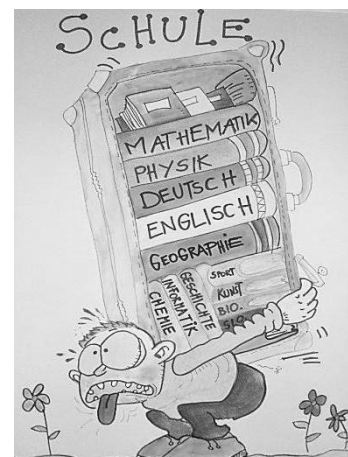 SCHULE
MATHEMATIK
PHYSIK
DEUTSCH
ENGLISCH
GEOGRAPHIE
CHEMIE
INFORMATIK
GESCHICHTE
SPORT
KUNST
BIO.